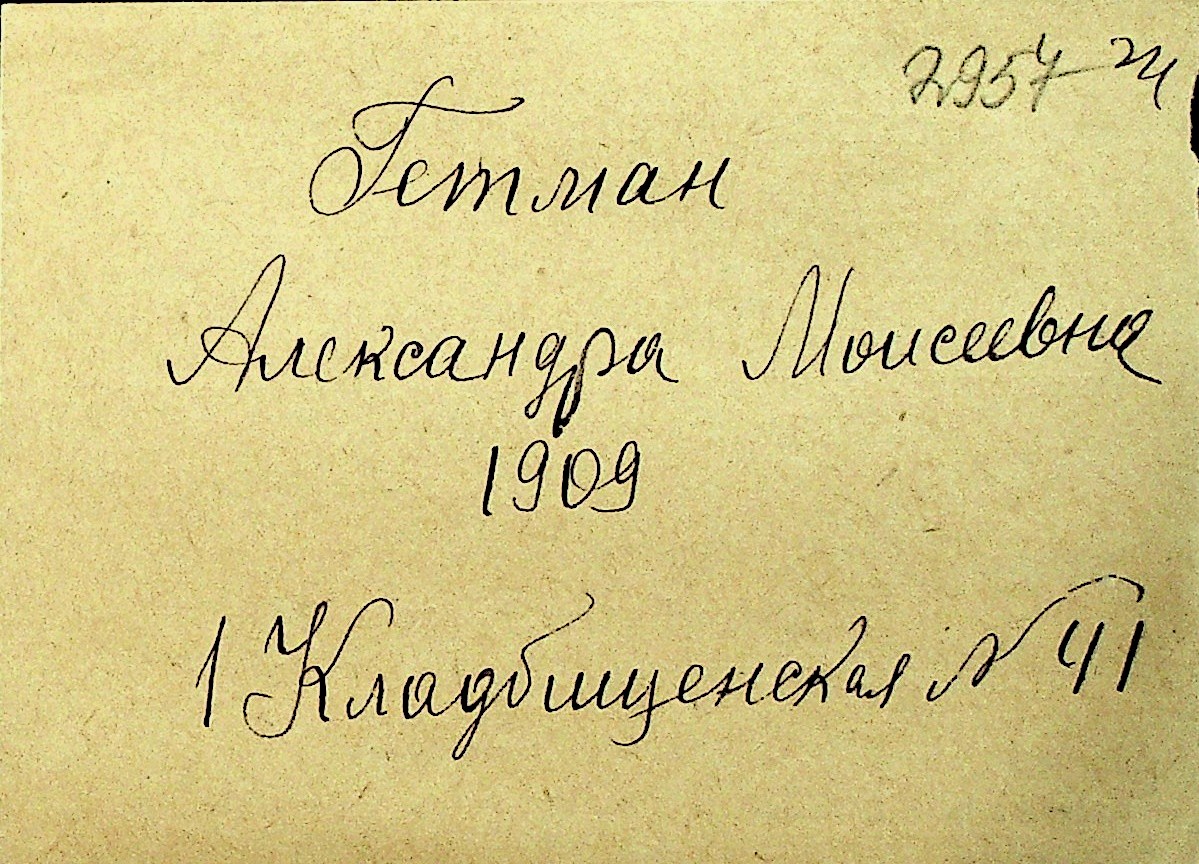 2957
Гетман
Александра Моисеевна
1909
1 Кладбищенская № 41